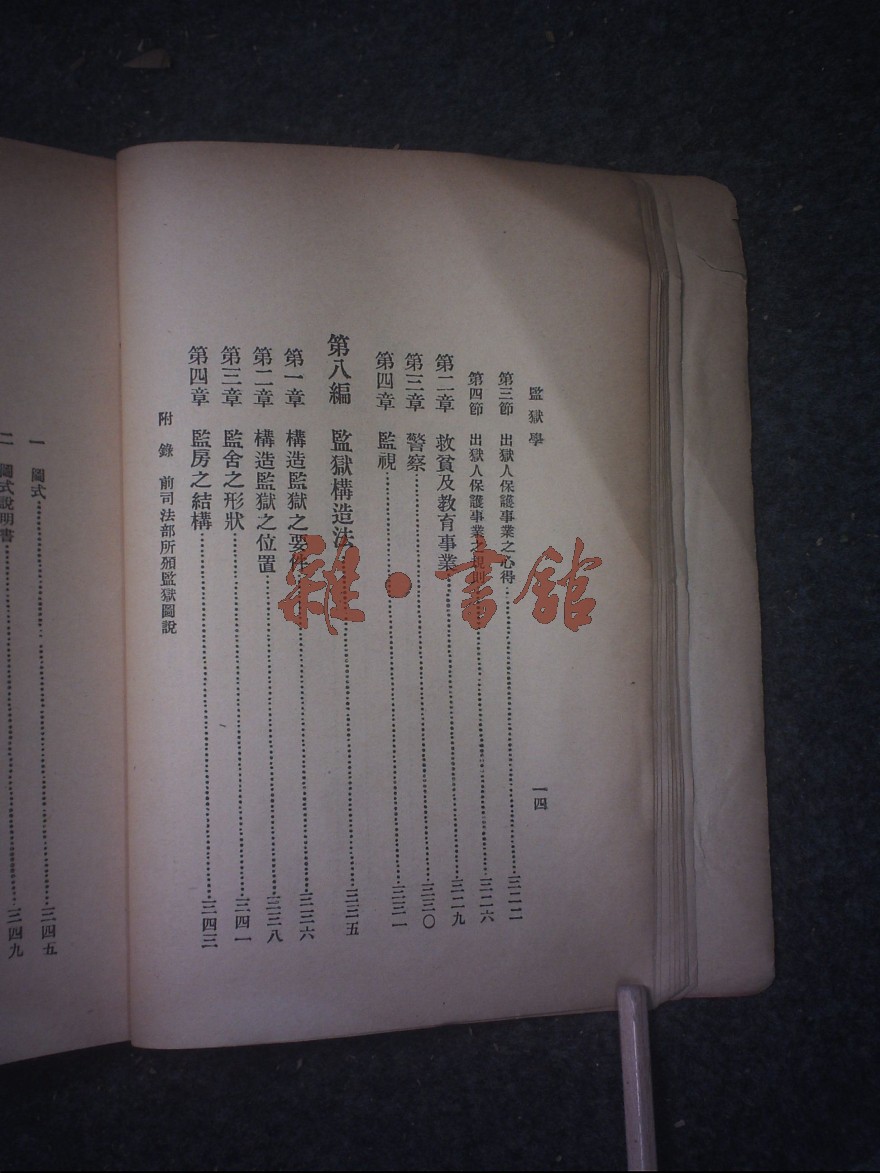 監獄學 一四
第三節 出獄人保護事業之心得……三二二
第四節 出獄人保護事業之規則……三二六
第二章 救貧及教育事業……三二九
第三章 警察……三三〇
第四章 監視……三三一
第八編 監獄構造法……三三五
第一章 構造監獄之要件……三三六
第二章 構造監獄之位置……三三八
第三章 監舍之形狀……三四一
第四章 監房之結構……三四三
附錄 前司法部所頒監獄圖說
一 圖式……三四五
二 圖式說明書……三四九
雜·書館